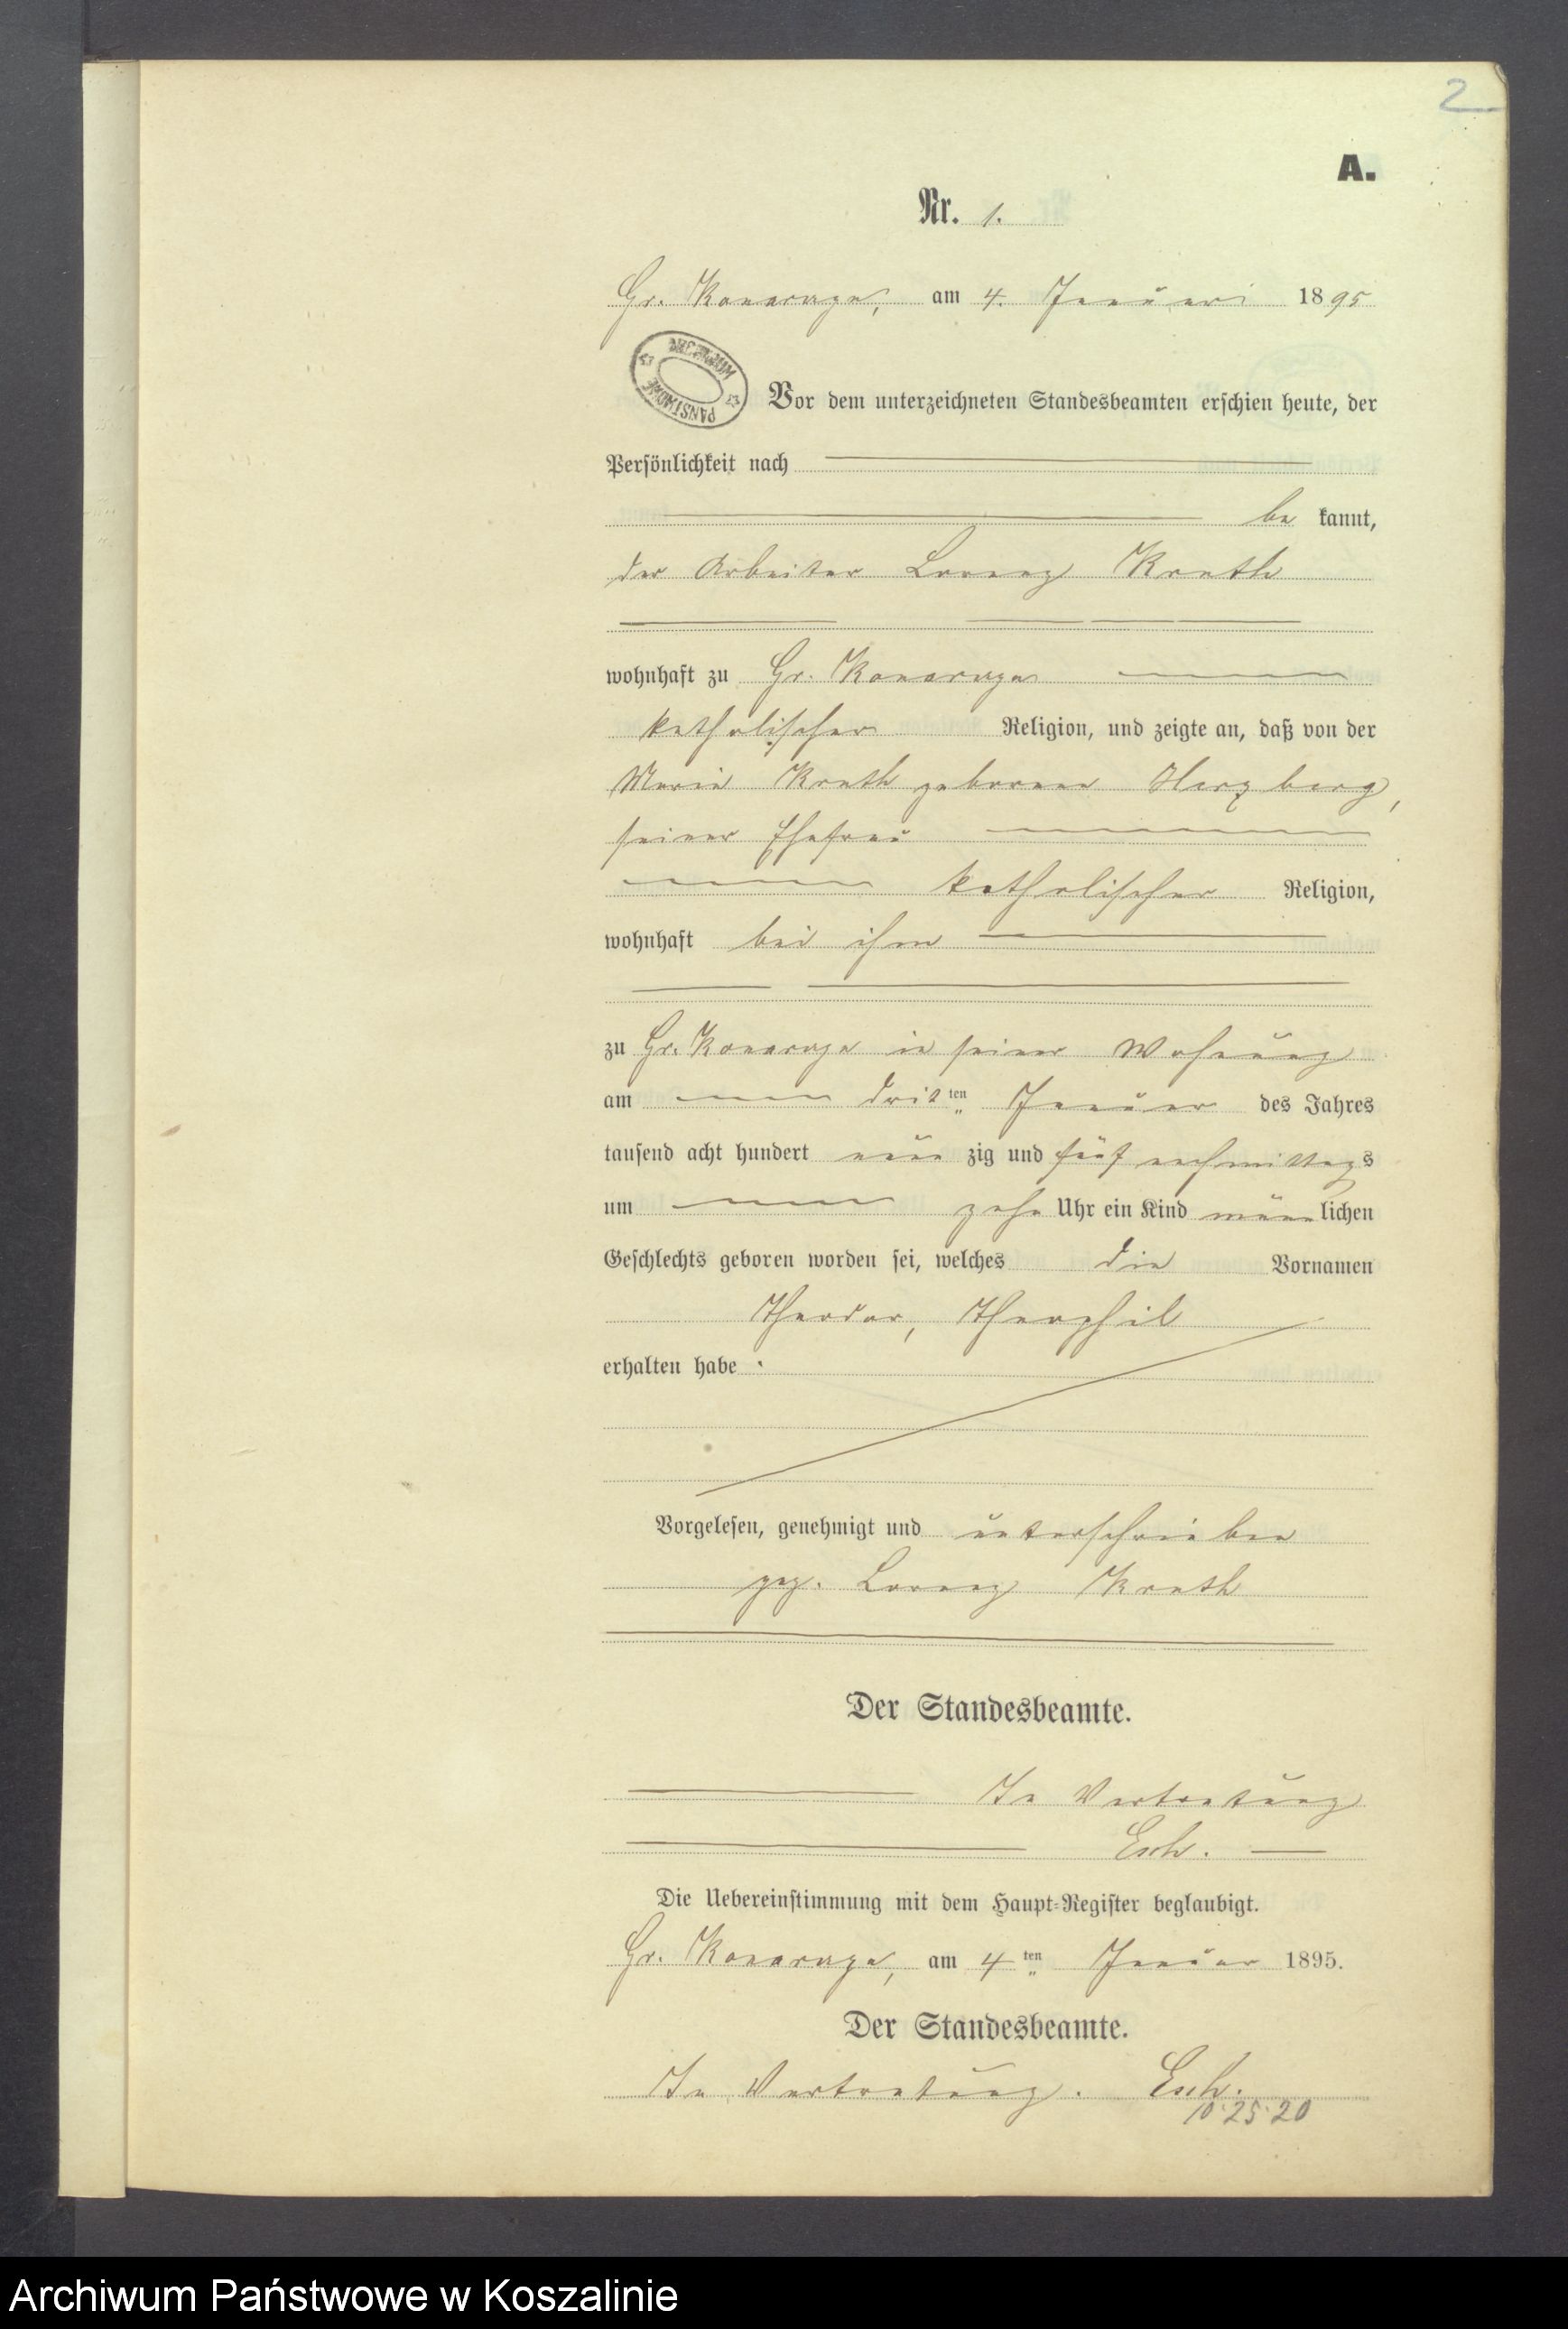 2
A.
Nr. 1.
Gr. Konarczyn, am 4. Januar 1895
ARCHIWUM PAŃSTWOWE
Vor dem unterzeichneten Standesbeamten erschien heute, der
Persönlichkeit nach
be kannt,
der Arbeiter Lorenz Knuth
wohnhaft zu Gr. Konarczyn
katholischer Religion, und zeigte an, daß von der
Maria Knuth geborene Herzberg,
seiner Ehefrau
katholischer Religion,
wohnhaft bei ihm
zu Gr. Konarczyn in seiner Wohnung
am drit ten Januar des Jahres
tausend acht hundert neun zig und fünf nachmittags
um zehn Uhr ein Kind männlichen
Geschlechts geboren worden sei, welches die Vornamen
Theodor, Theophil
erhalten habe.
Vorgelesen, genehmigt und unterschrieben
gez. Lorenz Knuth
Der Standesbeamte.
In Vertretung
Esch.
Die Uebereinstimmung mit dem Haupt-Register beglaubigt.
Gr. Konarczyn, am 4 ten Januar 1895.
Der Standesbeamte.
In Vertretung. Esch.
10·25·20
Archiwum Państwowe w Koszalinie